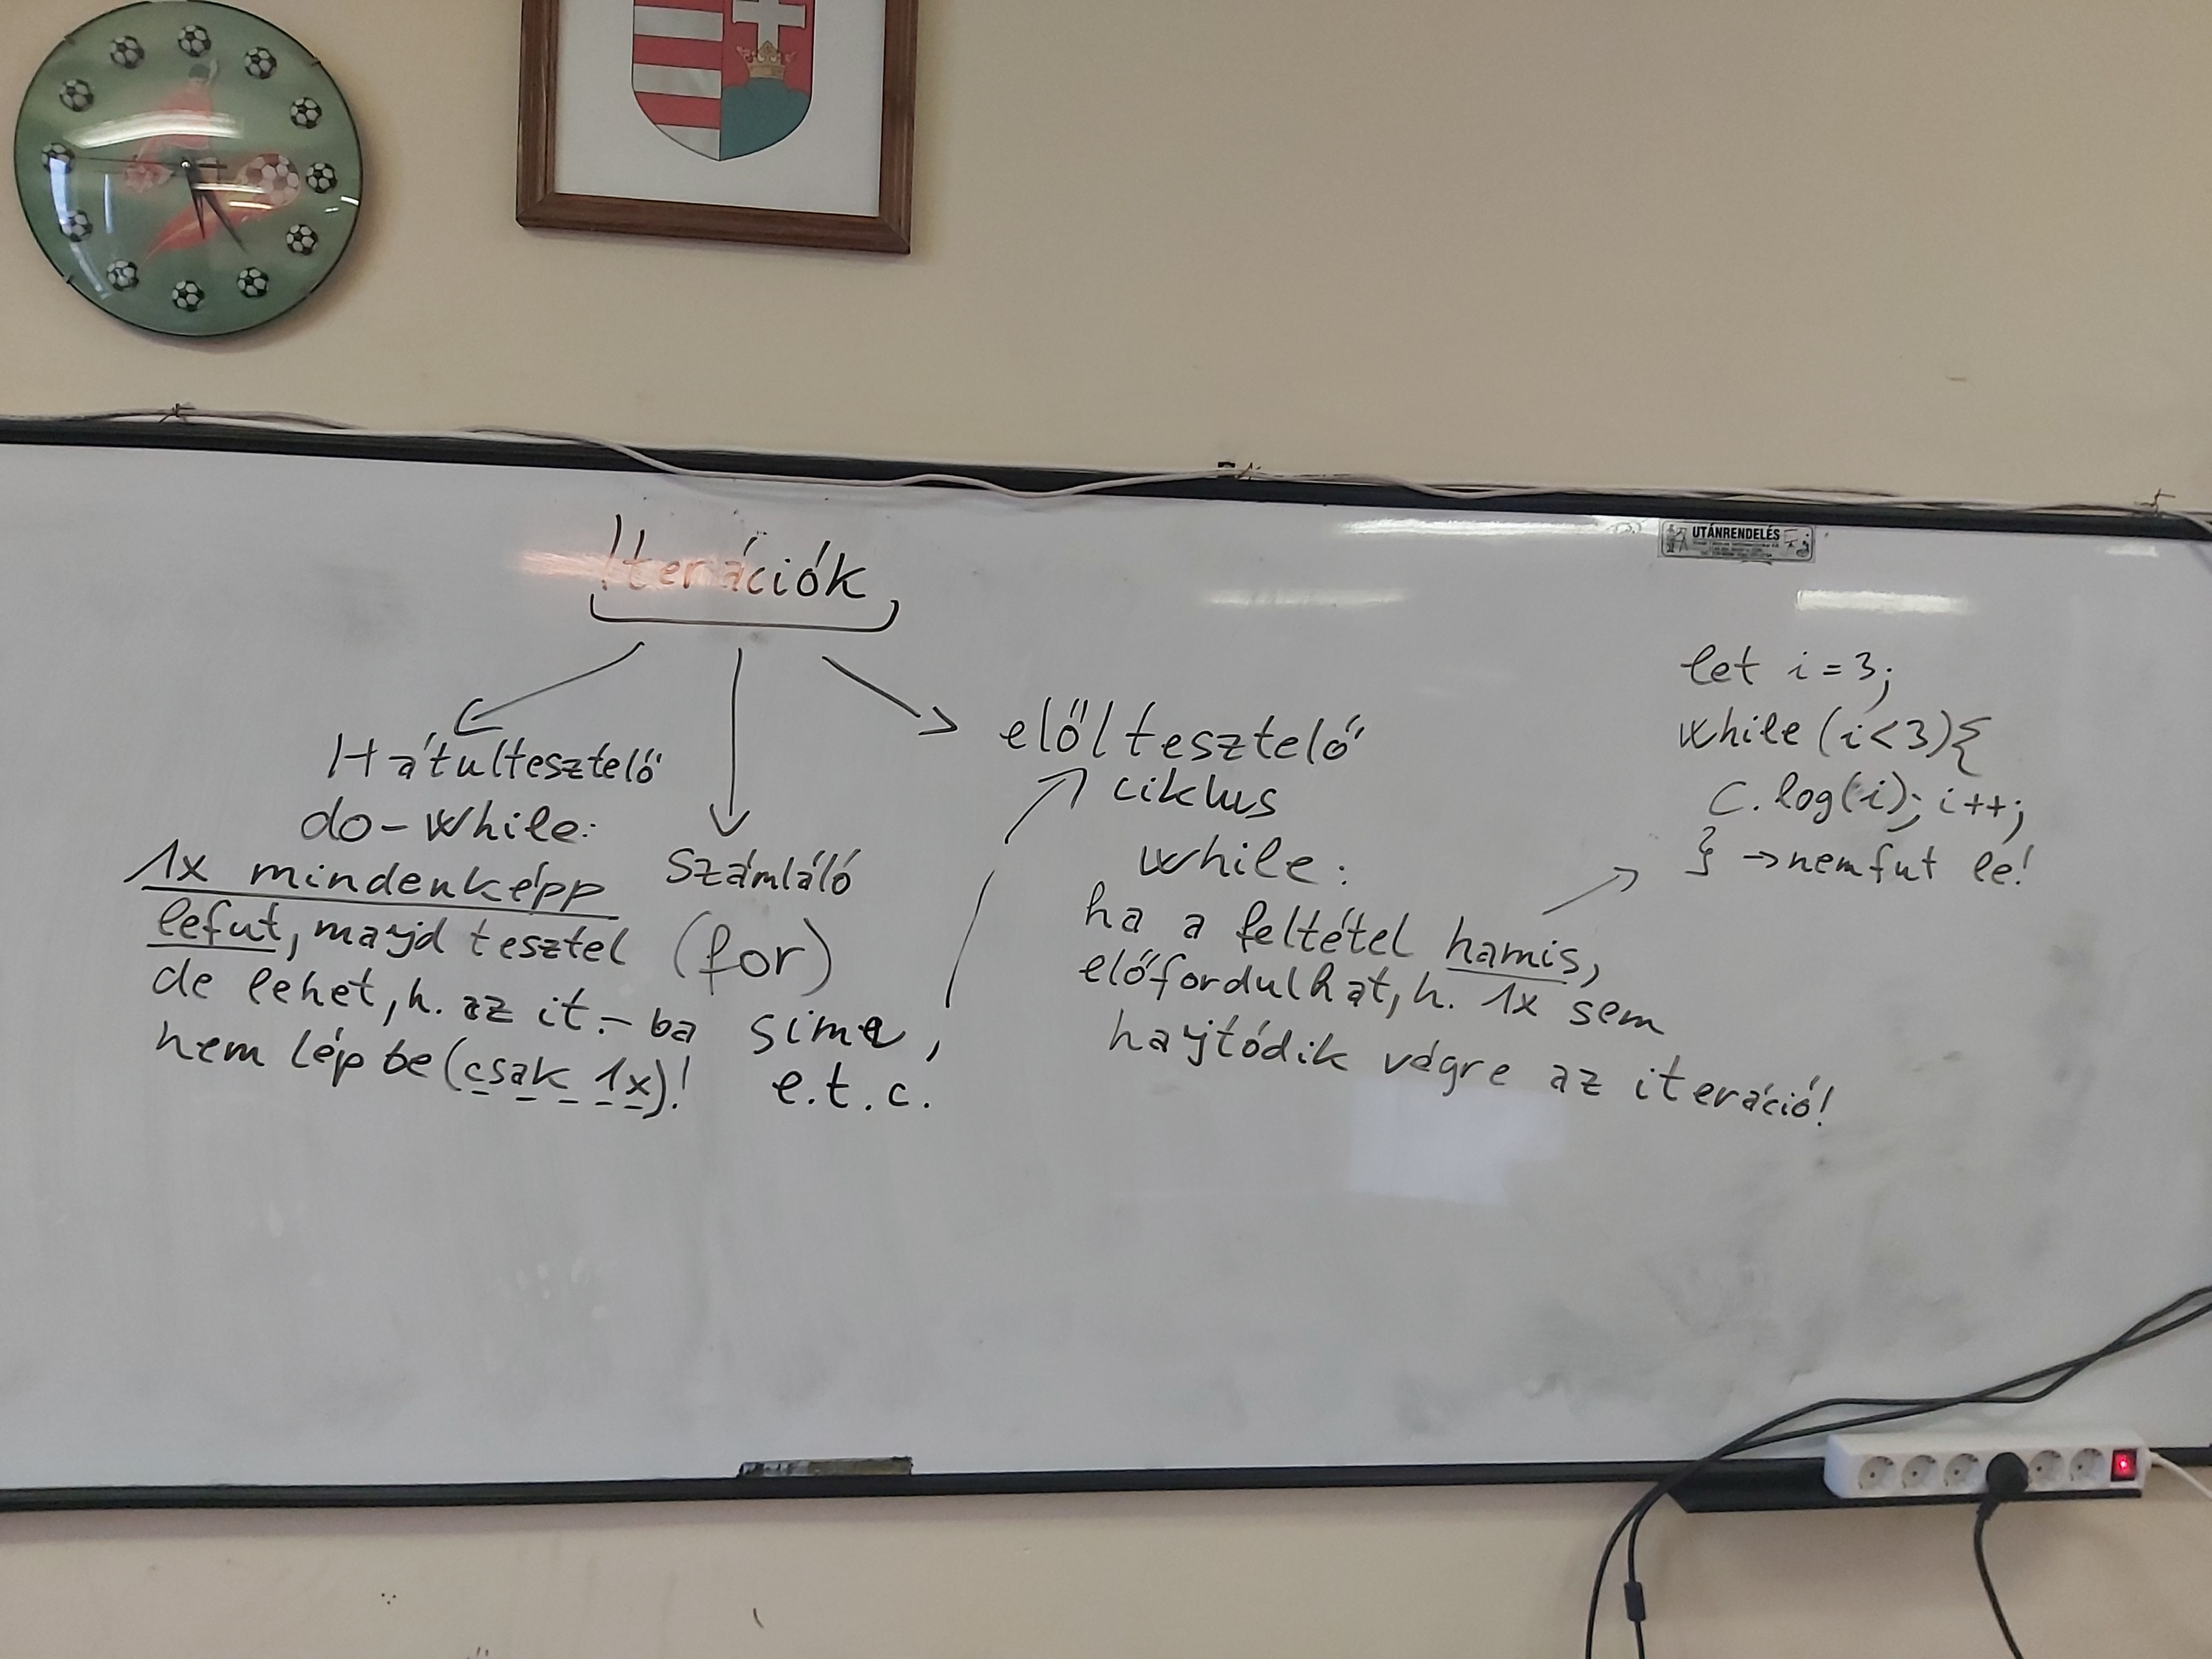 Iterációk
Hátultesztelő
do-while:
1x mindenképp
lefut, majd tesztel
de lehet, h. az it.-ba
nem lép be (csak 1x)!
Számláló
(for)
sima,
e.t.c.
elöltesztelő
ciklus
while:
ha a feltétel hamis,
előfordulhat, h. 1x sem
hajtódik végre az iteráció!
UTÁNRENDELÉS
let i = 3;
while (i<3){
C.log(i); i++;
} → nem fut le!